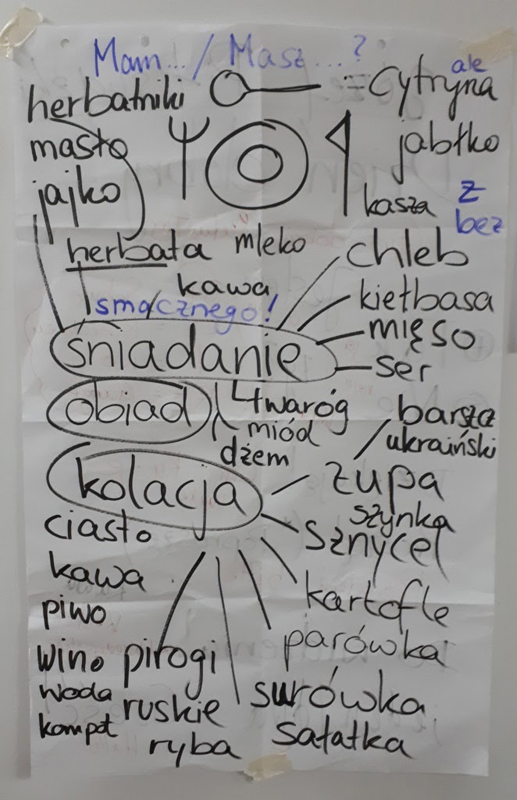 Mam... / Masz...?
herbatniki = cytryna ale
masło jabłko
jajko kasza z
bez
herbata mleko chleb
kawa kiełbasa
smacznego! mięso
śniadanie ser
obiad twaróg barszcz
miód ukraiński
dżem
kolacja zupa
ciasto szynka
sznycel
kawa kartofle
piwo parówka
wino pirogi
woda ruskie surówka
kompot ryba sałatka